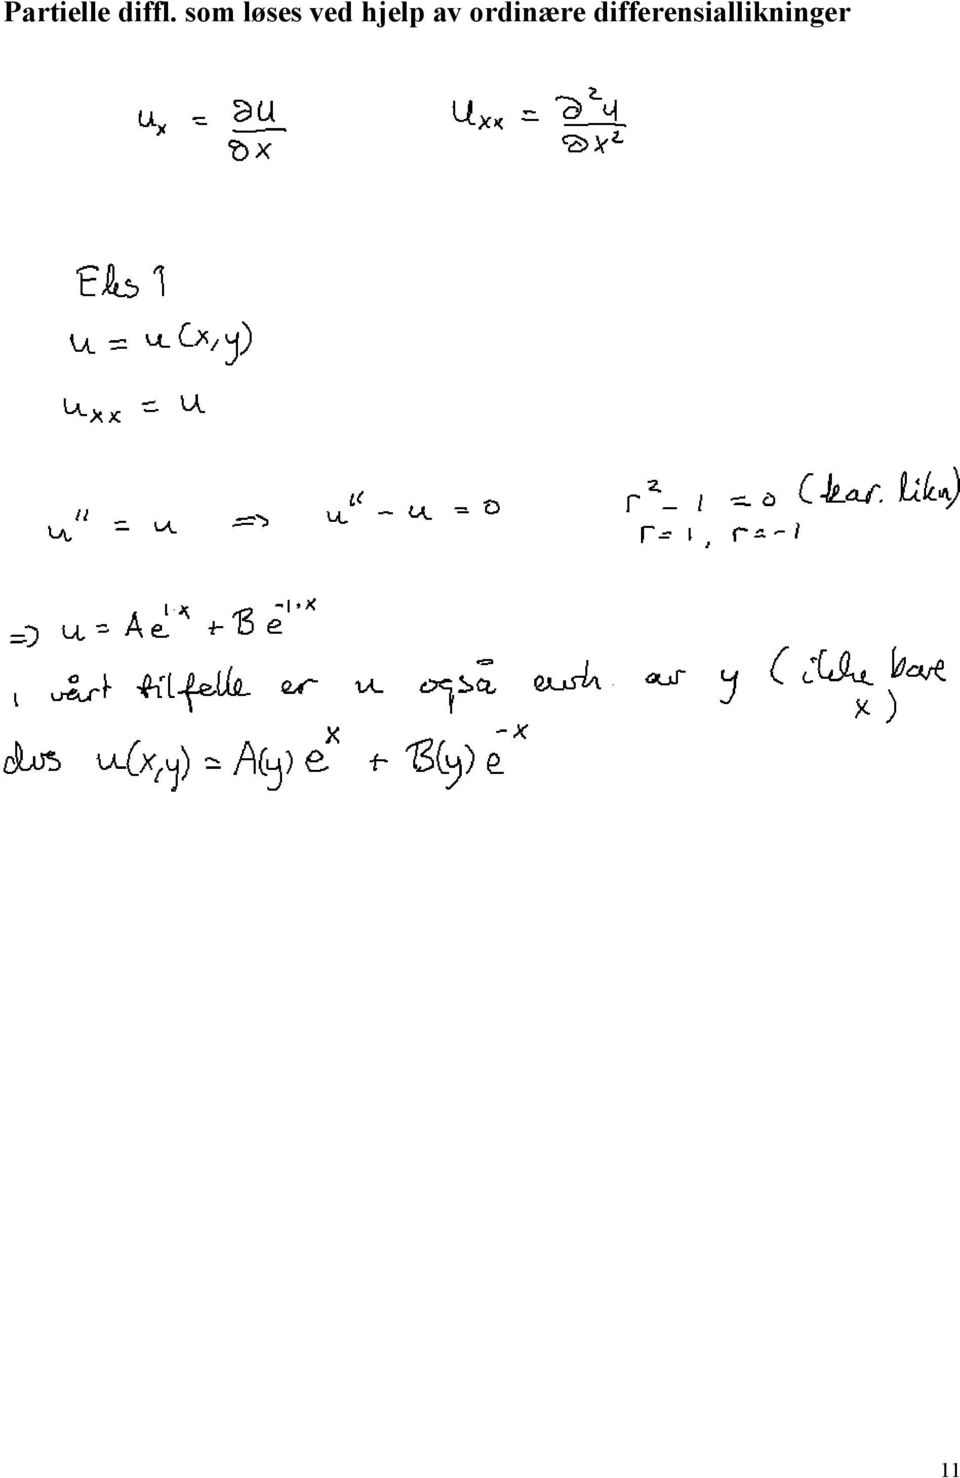 Partielle diffl. som løses ved hjelp av ordinære differensiallikninger
u_x = ∂u/∂x   u_xx = ∂²u/∂x²
Eks 1
u = u(x,y)
u_xx = u
u'' = u ⇒ u'' - u = 0   r² - 1 = 0 (kar. likn)
r = 1, r = -1
⇒ u = Ae^{1·x} + Be^{-1·x}
i vårt tilfelle er u også avh. av y (ikke bare
x)
dvs u(x,y) = A(y)e^x + B(y)e^{-x}
11